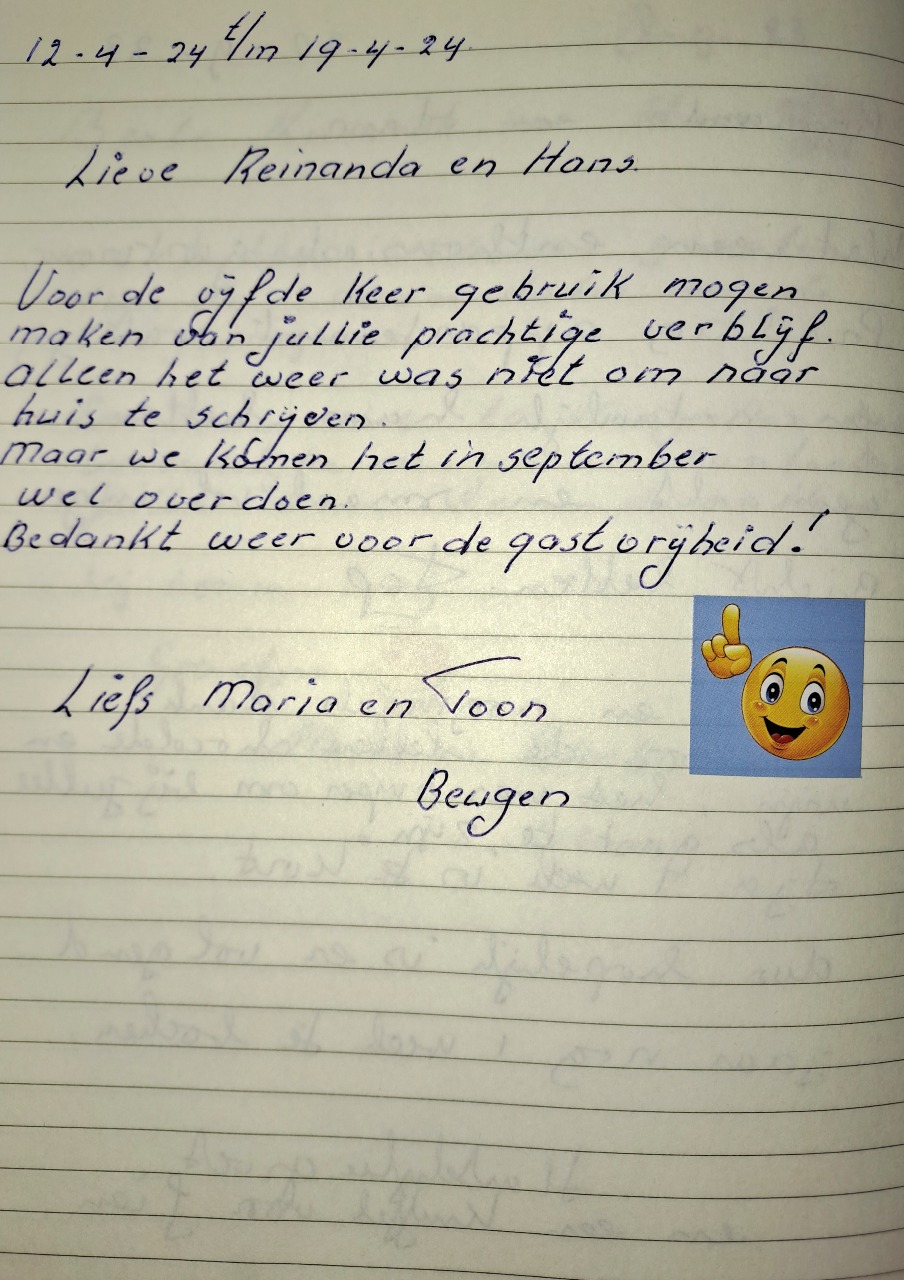 12-4-24 t/m 19-4-24.
Lieve Reinanda en Hans.
Voor de vijfde keer gebruik mogen
maken van jullie prachtige verblijf.
Alleen het weer was niet om naar
huis te schrijven.
Maar we komen het in september
wel overdoen.
Bedankt weer voor de gastvrijheid!
Liefs Maria en Toon
Beugen